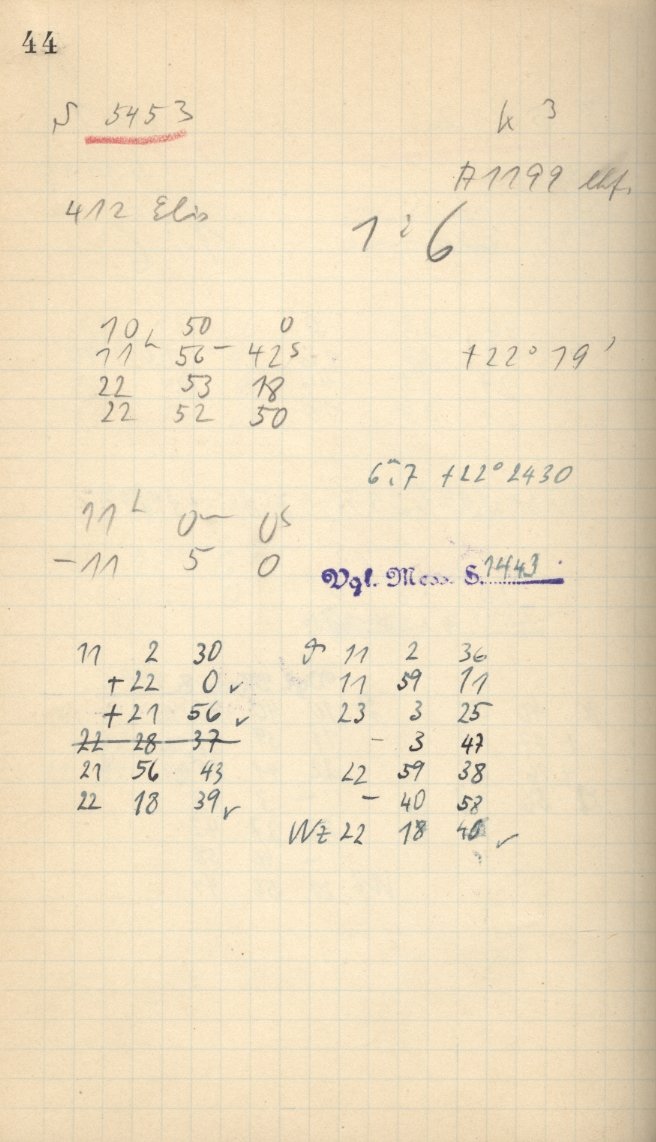 44
5453
k 3
A1199
412 Elis
1 : 6
10 50 0
11h 56m 42s
+22° 19'
22 53 18
22 52 50
+22° 2430
11h 0m 0s
-11 5 0
Vgl. Mess. S. 1443
11 2 30
+22 0 ✓
+21 56 ✓
22 28 37
21 56 43
22 18 39 ✓
11 2 36
11 59 11
23 3 25
- 3 47
22 59 38
- 40 58
WZ 22 18 40 ✓